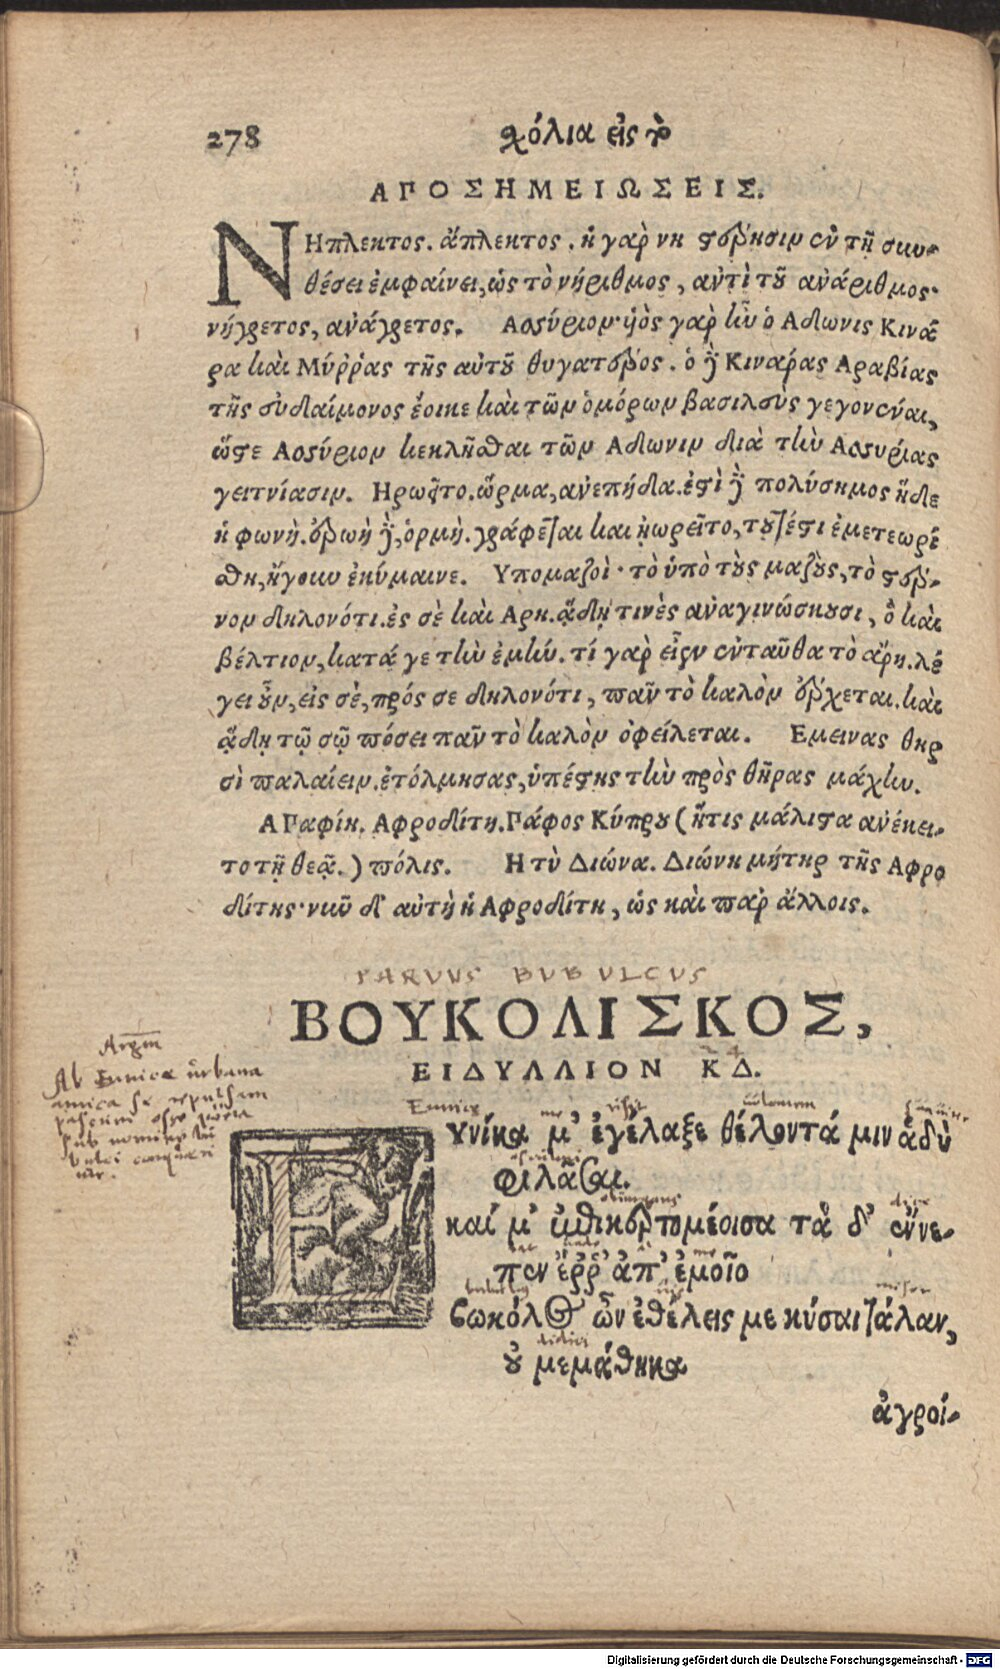 278 χόλια εἰς τὸ
ΑΠΟΣΗΜΕΙΩΣΕΙΣ.
ΝΗπλεκτος. ἄπλεκτος. ἡ γὰρ νη στέρησιν ἐν τῇ συν-
θέσει ἐμφαίνει, ὡς τὸ νήριθμος, αὐτὶ τοῦ ἀνάριθμος·
νήγρετος, ἀνάγρετος. Ασύριον· ὑὸς γὰρ ἦν ὁ Αδωνις Κινά
ρα καὶ Μύῤῥας τῆς αὐτοῦ θυγατέρος. ὁ δὲ Κιναράς Αραβίας
τῆς εὐδαίμονος ἔοικε καὶ τῶν ὁμόρων βασιλεὺς γεγονέναι,
ὥστε Ασσύριον κεκλῆσθαι τῶν Αδωνιν διὰ τὴν Ασσυρίας
γειτνίασιν. Ηρωεῖτο. ὥρμα, ἀνεπήδα. ἐστὶ δὲ πολύσημος ἥδε
ἡ φωνή. ἐρωὴ δὲ, ὁρμή. γράφεται καὶ ἠωρεῖτο, τουτέστι ἐμετεωρί
σθη, ἤγουν ἐκύμαινε. Υπομαζοὶ· τὸ ὑπὸ τοὺς μαζοὺς, τὸ στέρ-
νον δηλονότι. ἐς σὲ καὶ Αρη. ᾅδῃ τινὲς ἀναγινώσκουσι, ὃ καὶ
βέλτιον, κατά γε τὴν ἐμήν. τί γὰρ εἶχεν ἐνταῦθα τὸ ἄρη. λέ
γει οὖν, εἰς σὲ, πρός σε δηλονότι, παν τὸ καλὸν ἔρχεται. καὶ
ᾅδῃ τῷ σῷ πόσει παν τὸ καλὸν ὀφείλεται. Εμεινας θηρ
σὶ παλαίειν. ἐτόλμησας, ὑπέστης τὴν πρὸς θῆρας μάχην.
Α Παφίη. Αφροδίτη. Πάφος Κύπρου (ἥτις μάλιστα ἀνέκει-
το τῇ θεᾷ.) πόλις. Η τὺ Διώνα. Διώνη μήτηρ τῆς Αφρο
δίτης· νῦν δ᾽ αὐτὴ ἡ Αφροδίτη, ὡς καὶ παρ ἄλλοις.
PARVUS BUBULCUS
ΒΟΥΚΟΛΙΣΚΟΣ,
ΕΙΔΥΛΛΙΟΝ ΚΔ.
Argm
Ab Eunica urbana
amica se repulsum
sub nomine
Eunica me risit
ΕΥνίκα μ᾽ ἐγέλαξε θέλοντά μιν ἁδὺ
φιλᾶσαι.
καί μ᾽ ἐπικερτομέοισα τὰ δ᾽ ἔννε-
πεν ἔῤῥ᾽ ἀπ᾽ ἐμοῖο
bubulcus
Βωκόλος ὢν ἐθέλεις με κύσαι τάλαν,
didici
οὐ μεμάθηκα
ἀγροί-
Digitalisierung gefördert durch die Deutsche Forschungsgemeinschaft - DFG